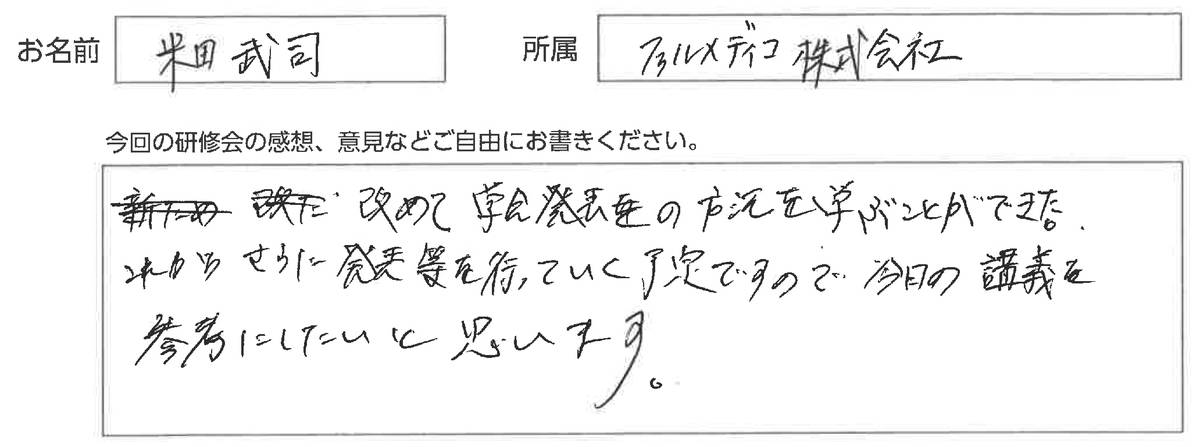 お名前 米田 武司 所属 ファルメディコ 株式会社
今回の研修会の感想、意見などご自由にお書きください。
改めて 学会発表の方法を学ぶことができた。
これから さらに 発表等を行っていく予定ですので 今日の講義を
参考にしたいと思います。